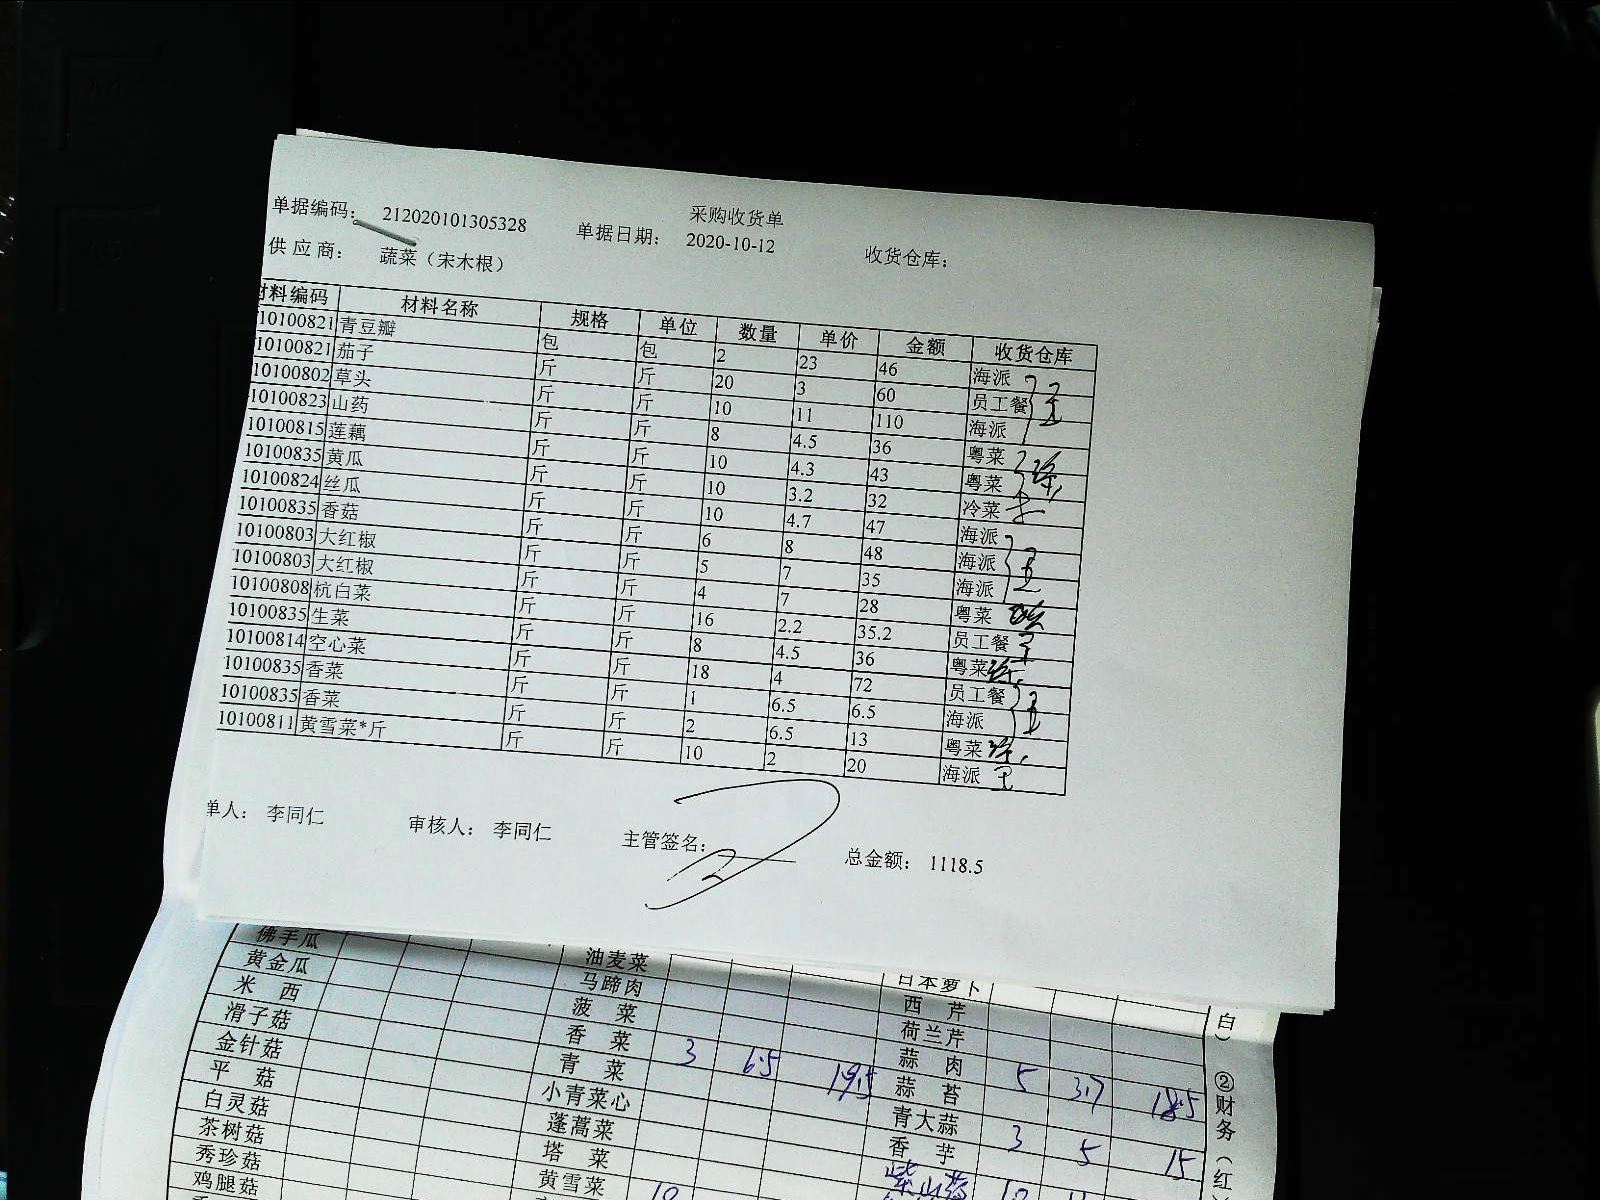 采购收货单
单据编码： 212020101305328 单据日期： 2020-10-12 收货仓库：
供应商： 蔬菜（宋木根）
材料编码 材料名称 规格 单位 数量 单价 金额 收货仓库
10100821 青豆瓣 包 包 2 23 46 海派
10100821 茄子 斤 斤 20 3 60 员工餐
10100802 草头 斤 斤 10 11 110 海派
10100823 山药 斤 斤 8 4.5 36 粤菜
10100815 莲藕 斤 斤 10 4.3 43 粤菜
10100835 黄瓜 斤 斤 10 3.2 32 冷菜
10100824 丝瓜 斤 斤 10 4.7 47 海派
10100835 香菇 斤 斤 6 8 48 海派
10100803 大红椒 斤 斤 5 7 35 海派
10100803 大红椒 斤 斤 4 7 28 粤菜
10100808 杭白菜 斤 斤 16 2.2 35.2 员工餐
10100835 生菜 斤 斤 8 4.5 36 粤菜
10100814 空心菜 斤 斤 18 4 72 员工餐
10100835 香菜 斤 斤 1 6.5 6.5 海派
10100835 香菜 斤 斤 2 6.5 13 粤菜
10100811 黄雪菜*斤 斤 斤 10 2 20 海派 王
单人： 李同仁 审核人： 李同仁 主管签名： 总金额： 1118.5
佛手瓜 油麦菜 日本萝卜
黄金瓜 马蹄肉 西芹
米西 菠菜 荷兰芹
滑子菇 香菜 3 6.5 19.5 蒜肉 5 3.7 18.5
金针菇 青菜 蒜苔
平菇 小青菜心 青大蒜 3 5 15
白灵菇 蓬蒿菜 香芋
茶树菇 塔菜 紫山药 10
秀珍菇 黄雪菜 10
鸡腿菇
白） ②财务（红